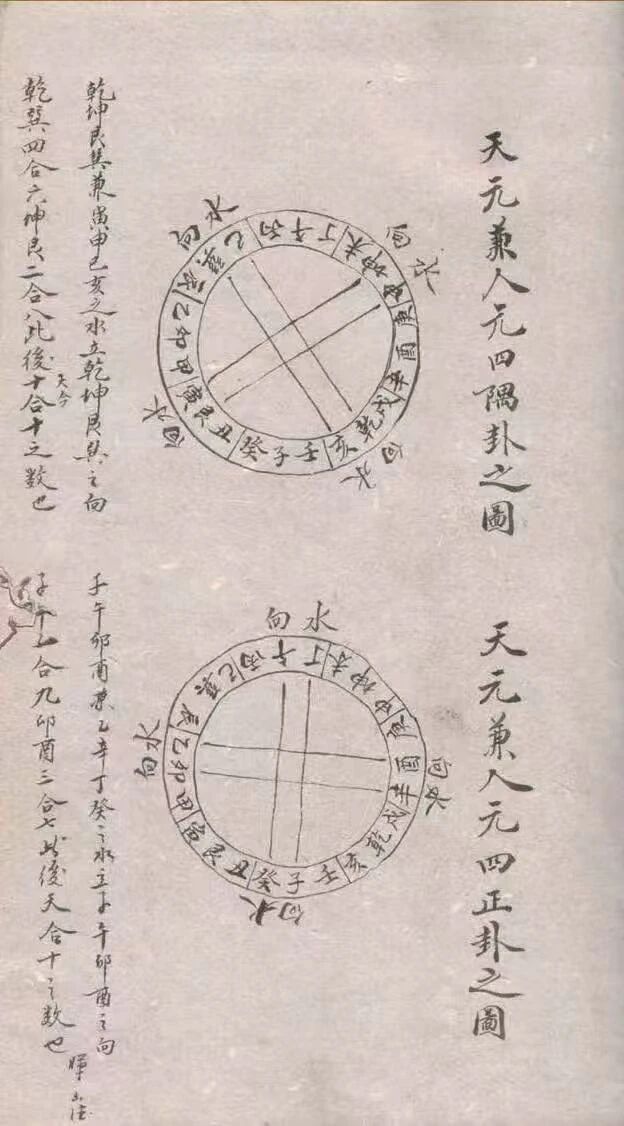 天元兼人元四隅卦之圖
水向
向水
向水
向水
巳丙午丁未坤申庚酉辛戌乾亥壬子癸丑艮寅甲卯乙辰巽
乾坤艮巽兼寅申巳亥之水立乾坤艮巽之向
乾巽四合六坤艮二合八此後十合十之数也
天元兼人元四正卦之圖
向水
向水
向水
向水
巳丙午丁未坤申庚酉辛戌乾亥壬子癸丑艮寅甲卯乙辰巽
子午卯酉兼乙辛丁癸之水立子午卯酉之向
子午一合九卯酉三合七此後天合十之数也